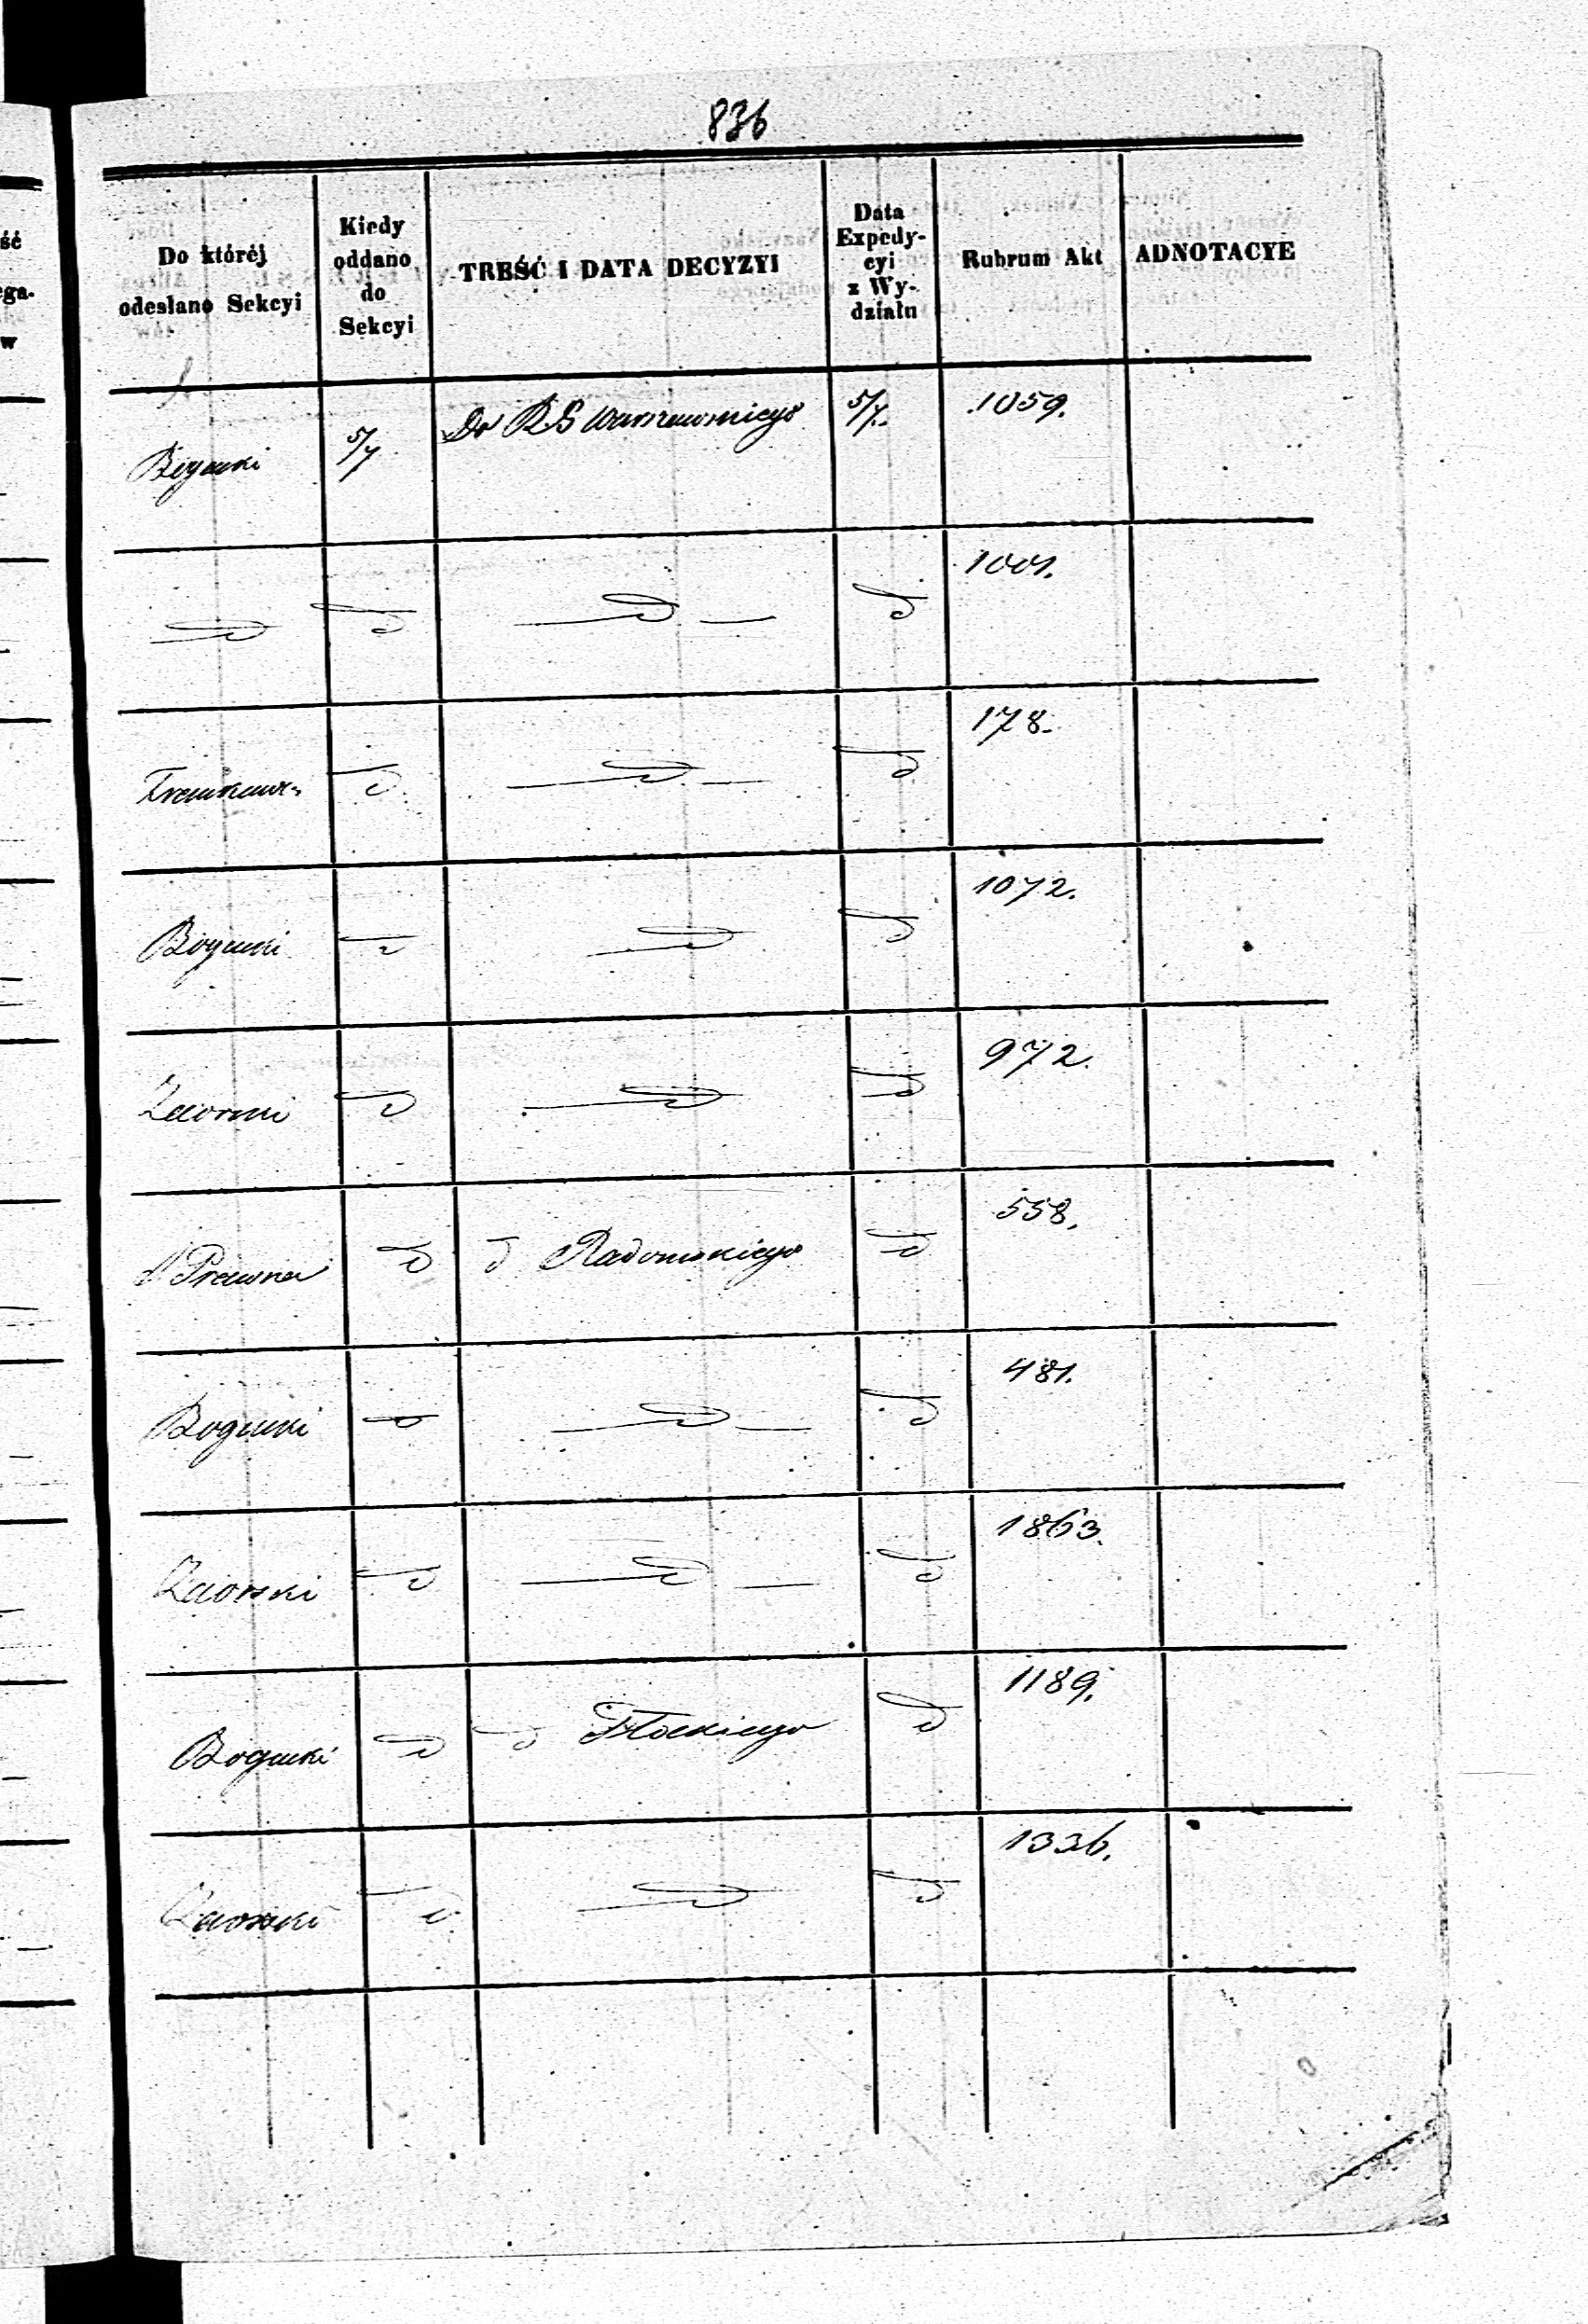 836
ść
ga.
w
Do któréj
odesłano Sekcyi
Kiedy
oddano
do
Sekcyi
TREŚĆ I DATA DECYZYI
Data
Expedy-
cyi
z Wy-
działu
Rubrum Akt
ADNOTACYE
Bogucki 5/7 Do RG Warszawskiego 5/7. 1059.
d d d 1001.
d d d 178.
Bogucki d d d 1072.
Zaorski d d d 972.
Prawna d d Radomskiego d 558.
Bogucki d d d 481.
Zaorski d d d 1863.
Bogucki d d Płockiego d 1189.
Zaorski d d d 1336.